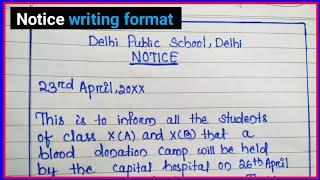 Notice writing format
Delhi Public School, Delhi
NOTICE
23rd April, 20XX
This is to inform all the students
of class X(A) and X(B) that a
blood donation camp will be held
by the capital hospital on 26th April